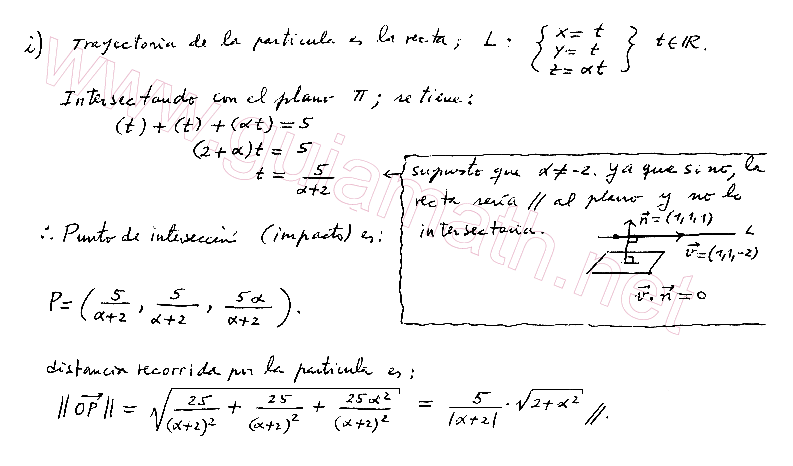 i) Trayectoria de la partícula es la recta; L: { x = t y = t z = αt } t ∈ IR.
Intersectando con el plano π; se tiene:
(t) + (t) + (αt) = 5
(2 + α)t = 5
t = 5/(α+2)
← supuesto que α ≠ -2. ya que si no, la
recta sería // al plano y no lo
intersectaria.
n⃗ = (1,1,1)
L
v⃗ = (1,1,-2)
v⃗ · n⃗ = 0
∴ Punto de intersección (impacto) es:
P = ( 5/(α+2) , 5/(α+2) , 5α/(α+2) ).
distancia recorrida por la partícula es;
‖OP⃗‖ = √( 25/(α+2)² + 25/(α+2)² + 25α²/(α+2)² ) = 5/|α+2| · √(2+α²) //.
www.guiamath.net